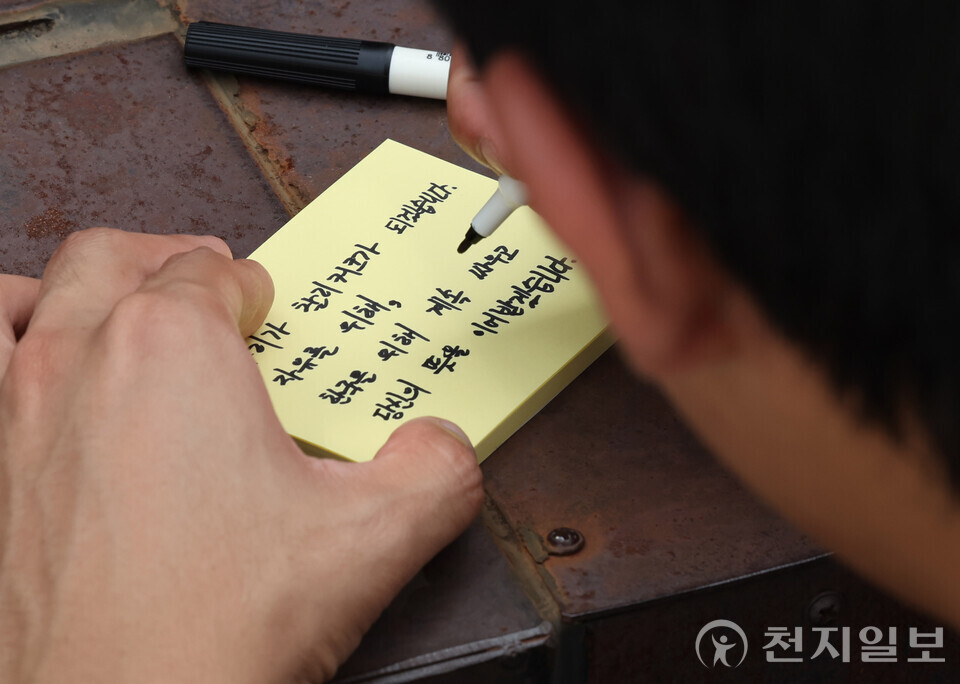 리가 찰리커크가 되겠습니다.
자유를 위해,
한국을 위해 계속 싸우고
당신의 뜻을 이어받겠습니다.
천지일보